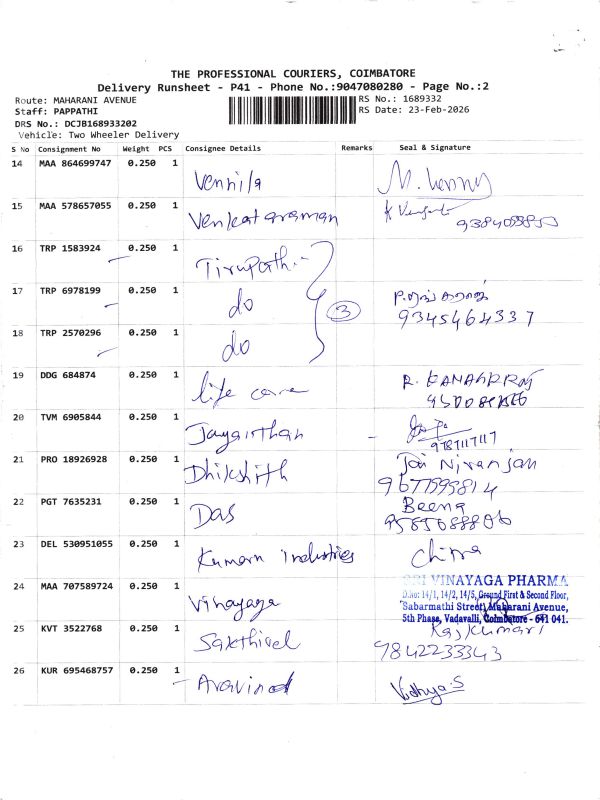 THE PROFESSIONAL COURIERS, COIMBATORE
Delivery Runsheet - P41 - Phone No.:9047080280 - Page No.:2
Route: MAHARANI AVENUE RS No.: 1689332
Staff: PAPPATHI RS Date: 23-Feb-2026
DRS No.: DCJB168933202
Vehicle: Two Wheeler Delivery
S No Consignment No Weight PCS Consignee Details Remarks Seal & Signature
14 MAA 864699747 0.250 1 Vennila
15 MAA 578657055 0.250 1 Venkataraman
16 TRP 1583924 0.250 1 Tirupathi
17 TRP 6978199 0.250 1 do 3
9345464337
18 TRP 2570296 0.250 1 do
19 DDG 684874 0.250 1 life care R.
20 TVM 6905844 0.250 1
21 PRO 18926928 0.250 1 Dhikshith Jai Niranjan
9677595814
22 PGT 7635231 0.250 1 Das Beena
23 DEL 530951055 0.250 1 Kumarn industries Chitra
24 MAA 707589724 0.250 1 Vinayaga SRI VINAYAGA PHARMA
D.No: 14/1, 14/2, 14/5, Ground First & Second Floor,
Sabarmathi Street, Maharani Avenue,
5th Phase, Vadavalli, Coimbatore - 641 041.
25 KVT 3522768 0.250 1 Sakthivel Rajkumari
9842233343
26 KUR 695468757 0.250 1 Aravind Vidhya S